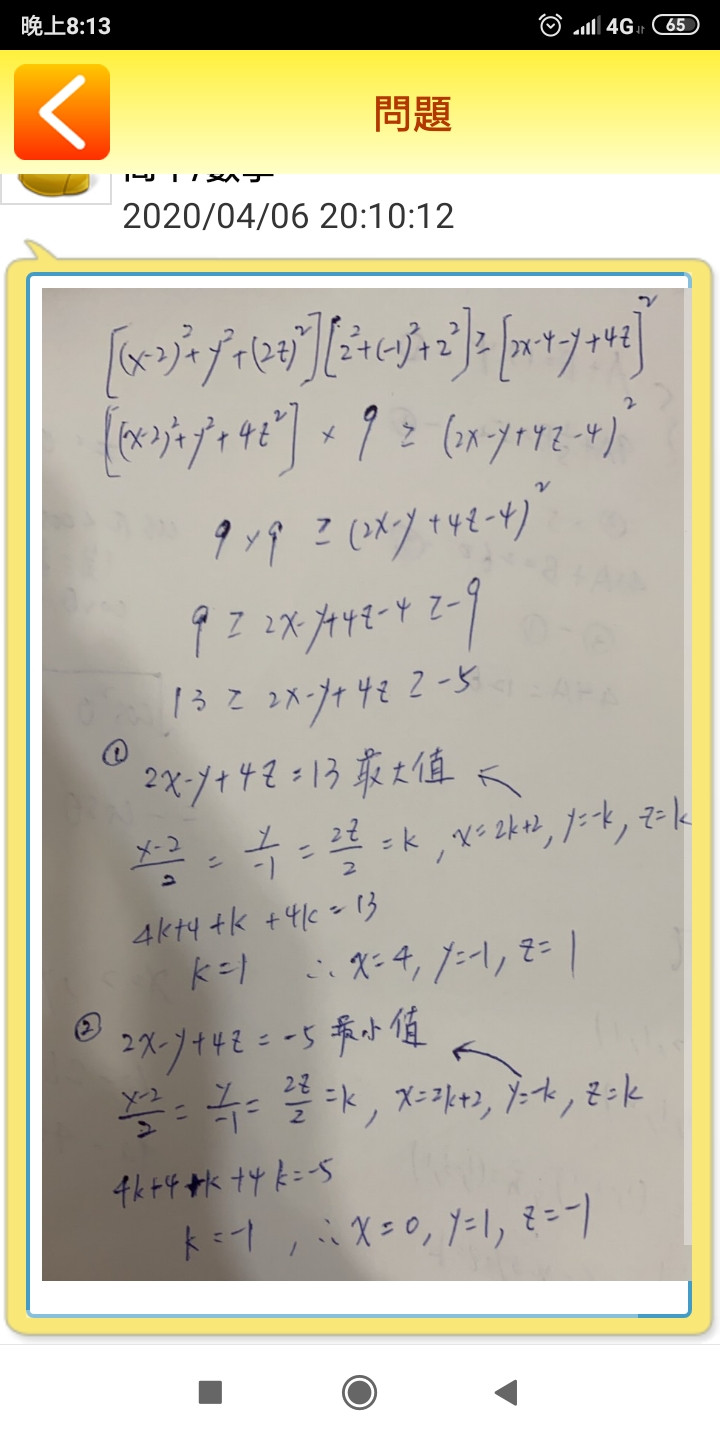 晚上8:13 4G 65
問題
2020/04/06 20:10:12
[(x-2)²+y²+(2z)²][2²+(-1)²+2²]≥[2x-4-y+4z]²
[(x-2)²+y²+4z²]×9≥(2x-y+4z-4)²
9×9≥(2x-y+4z-4)²
9≥2x-y+4z-4≥-9
13≥2x-y+4z≥-5
① 2x-y+4z=13 最大值
(x-2)/2=y/-1=2z/2=k, x=2k+2, y=-k, z=k
4k+4+k+4k=13
k=1 ∴x=4, y=-1, z=1
② 2x-y+4z=-5 最小值
(x-2)/2=y/-1=2z/2=k, x=2k+2, y=-k, z=k
4k+4+k+4k=-5
k=-1, ∴x=0, y=1, z=-1